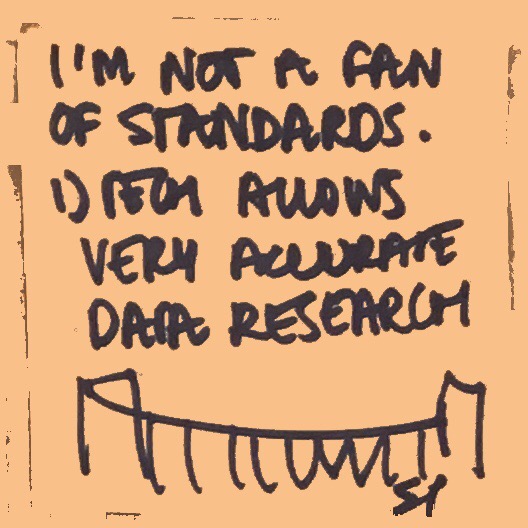 I'M NOT A FAN
OF STANDARDS.
1) TECH ALLOWS
VERY ACCURATE
DATA RESEARCH